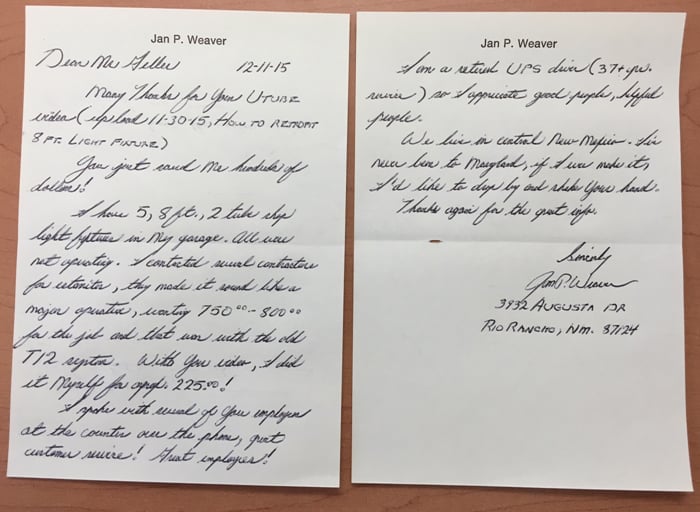 Jan P. Weaver
Dear Mr Feller 12-11-15
Many Thanks for Your UTUBE
video (upload 11-30-15, HOW TO RETROFIT
8 FT. LIGHT FIXTURE)
You just saved Me hundreds of
dollars!
I have 5, 8 ft., 2 tube shop
light fixtures in My garage. All were
not operating. I contacted several contractors
for estimates, they made it sound like a
major operation, wanting 750.00 - 800.00
for the job and that was with the old
T12 system. With Your video, I did
it Myself for approx. 225.00!
I spoke with several of Your employees
at the counter over the phone, great
customer service! Great employees!
Jan P. Weaver
I am a retired UPS driver (37+ yrs.
service) so I appreciate good people, helpful
people.
We live in central New Mexico. I've
never been to Maryland, if I ever make it,
I'd like to drop by and shake Your hand.
Thanks again for the great info.
Sincerely
Jan P. Weaver
3932 AUGUSTA DR
RIO RANCHO, NM. 87124